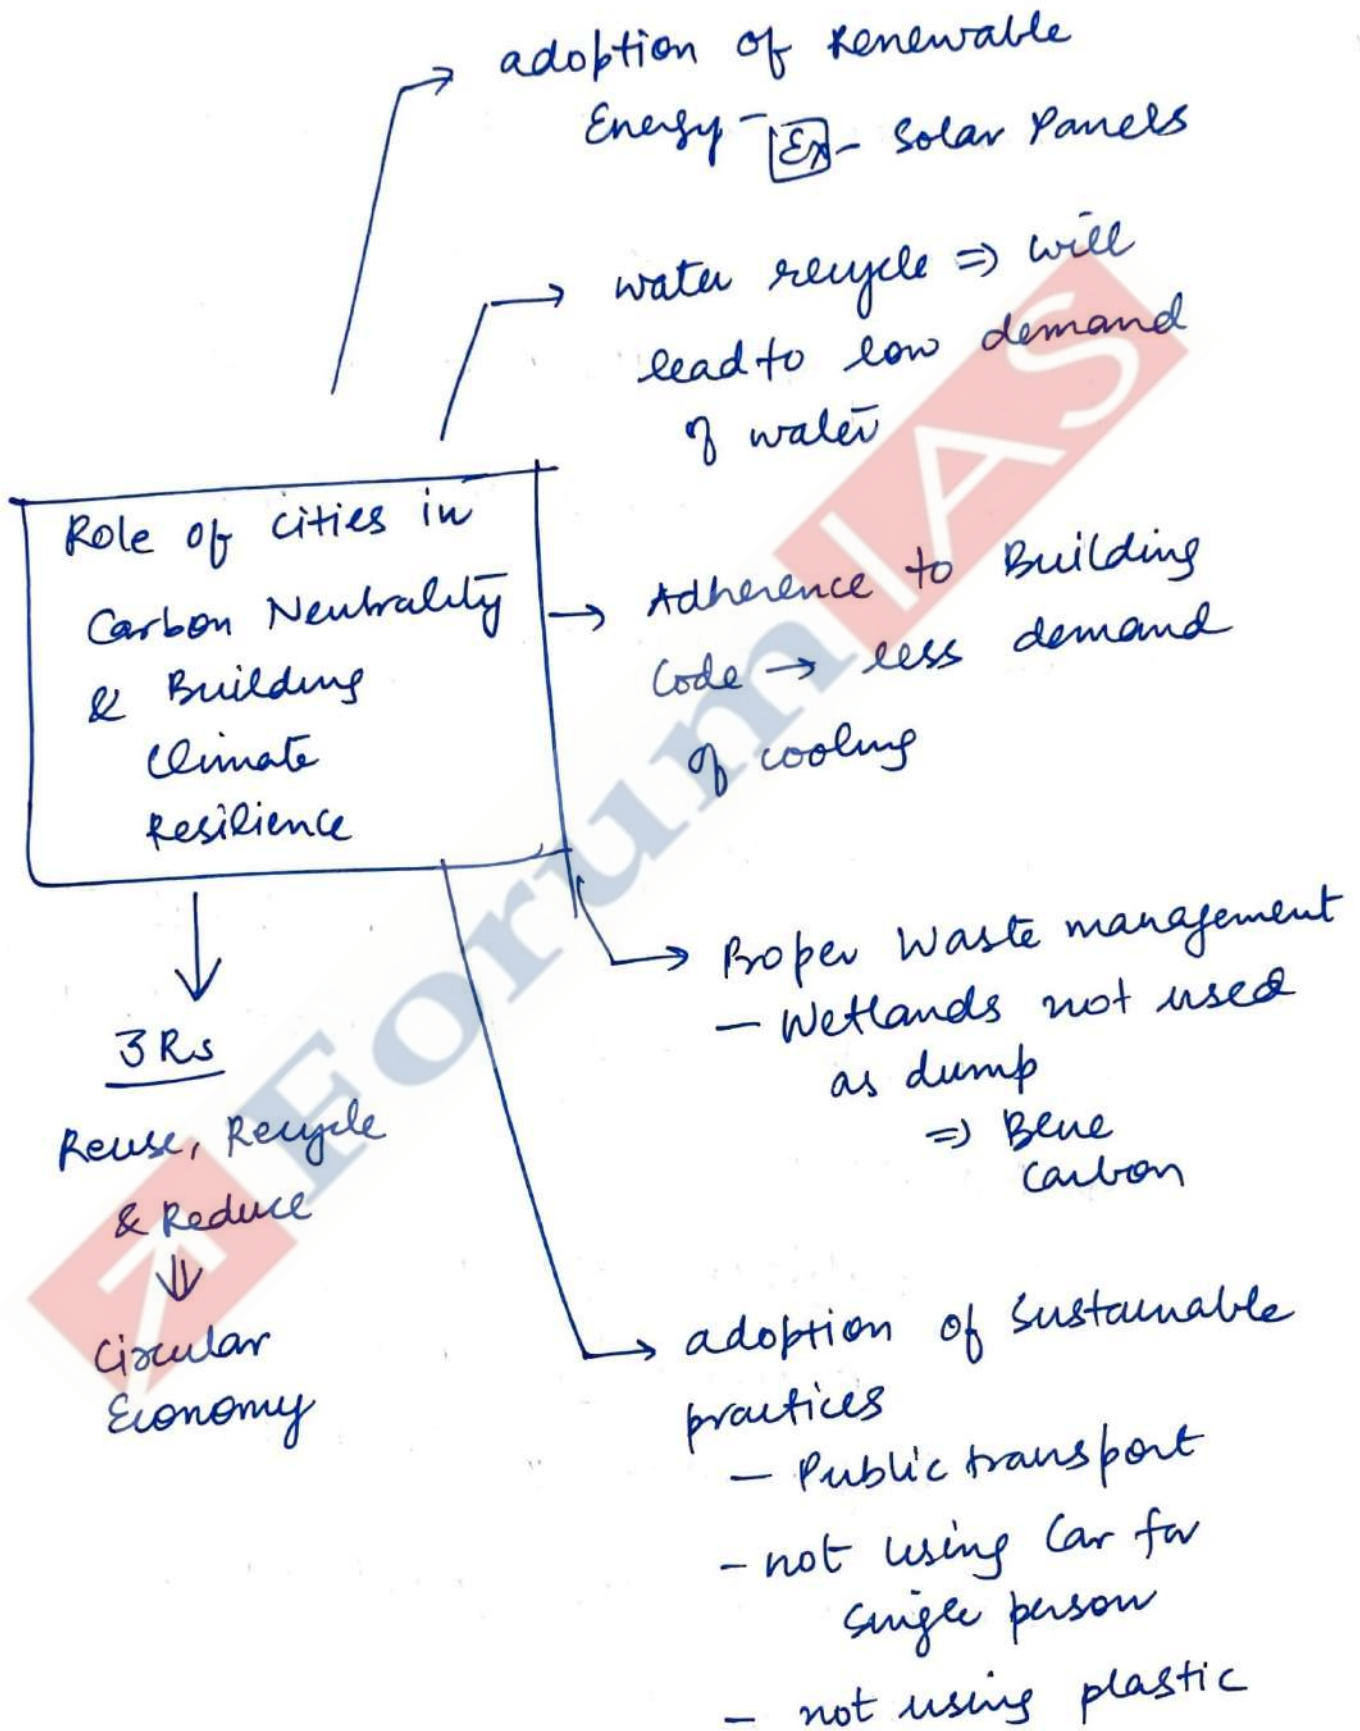 adoption of Renewable
Energy - Ex - Solar Panels
water recycle ⇒ will
lead to low demand
of water
Role of cities in
Carbon Neutrality
& Building
Climate
Resilience
→ Adherence to Building
Code → less demand
of cooling
Proper Waste management
- Wetlands not used
as dump
⇒ Blue
Carbon
3 Rs
Reuse, Recycle
& Reduce
⇓
Circular
Economy
adoption of sustainable
practices
- Public transport
- not using Car for
single person
- not using plastic
ForumIAS